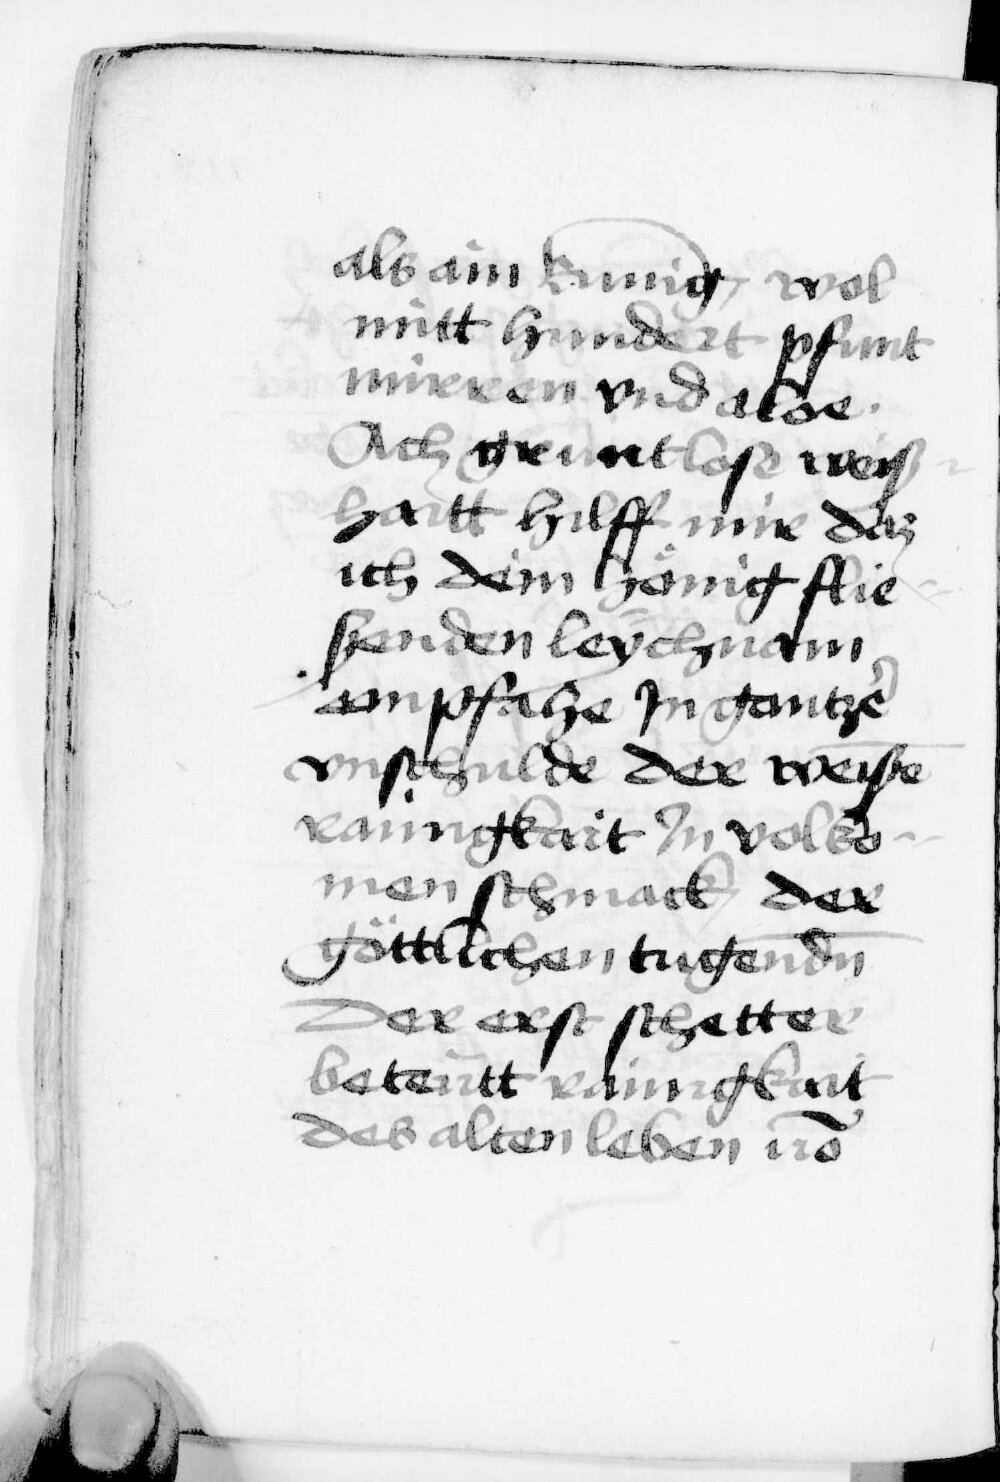 als ain kunig wol
mitt hundert pfunt
mirren vnd aloe.
Ach gruntlose weiß-
haitt hilff mir daz
ich dein hönig flie-
ssenden leychnam
empfahe In gantzer
vnschulde der weisse
rainigkait In volko-
men schmack der
göttlichen tugendn
Der erst schetter
beteütt rainigkait
des alten leben